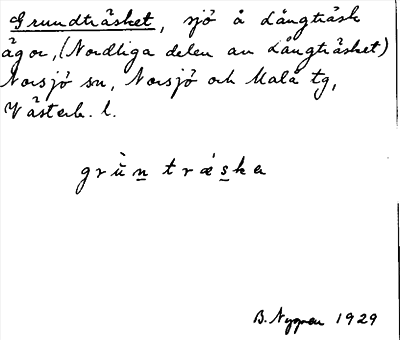 Grundträsket, sjö å Långträsk
ägor, (Nordliga delen av Långträsket)
Norsjö sn, Norsjö och Malå tg,
Västerb. l.
grùn̲ træs̲ka
B. Nygren 1929